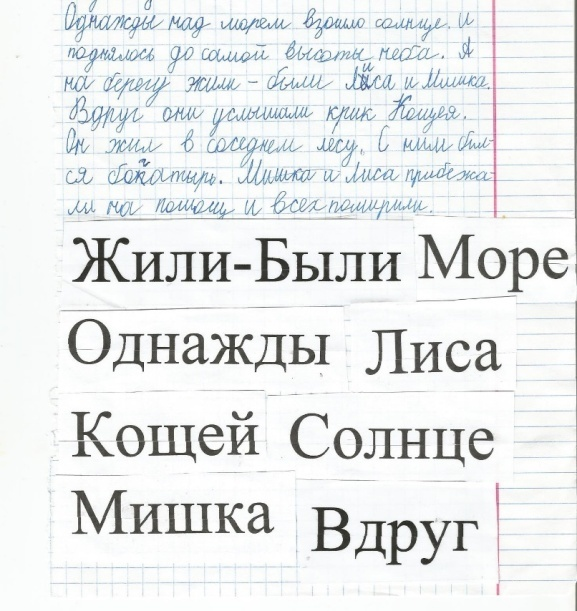 Однажды над морем взошло солнце. И
поднялось до самой высоты неба. А
на берегу жили - были Лиса и Мишка.
Вдруг они услышали крик Кощея.
Он жил в соседнем лесу. С ним бил-
ся богатырь. Мишка и Лиса прибежа-
ли на помощ и всех помирили.
Жили-Были Море
Однажды Лиса
Кощей Солнце
Мишка Вдруг